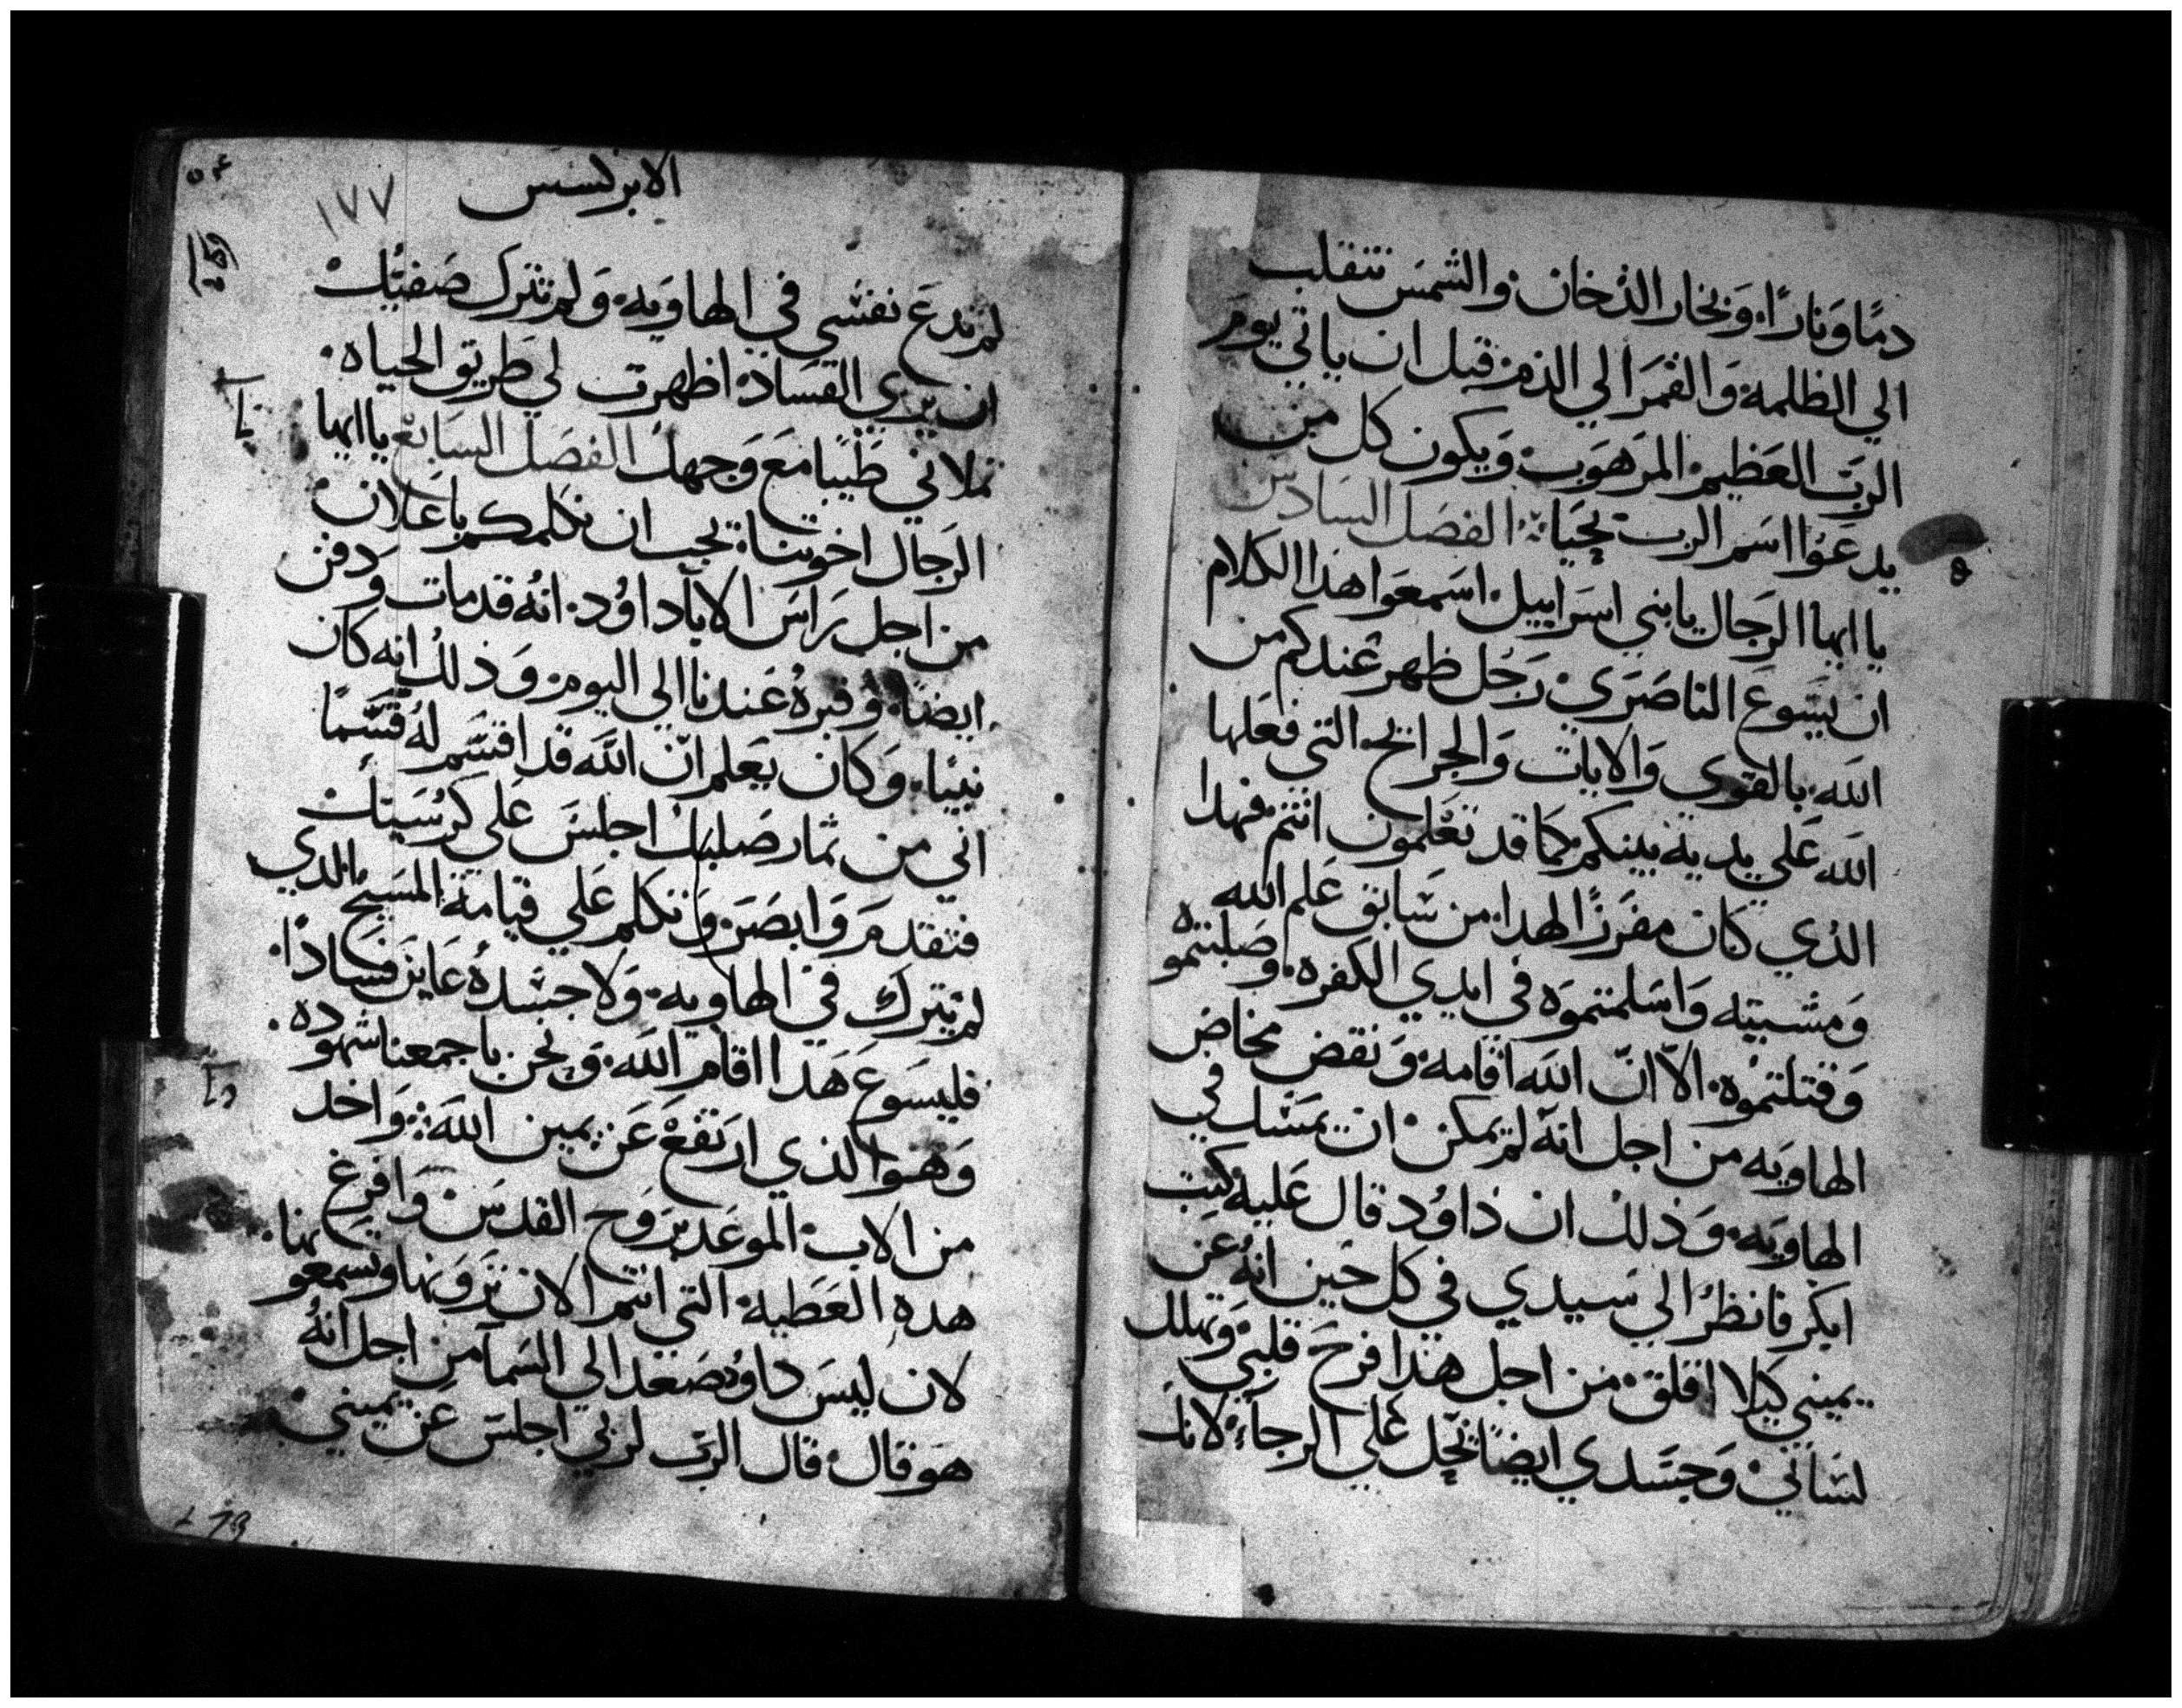 دمًا وَنارًا. وَبخار الدخان. والشمسَ تنقلب
الي الظلمه. وَالقمرَ الي الدم. قبل ان ياتي يومَ
الربّ العَظيم. المرهوَب. وَيكون كل من
يدعَوُا اسَم الرب يحيَاة. الفصَل السَادس
يا ايها الرجال يا بني اسرَاييل. اسَمعَوا هذا الكلام
ان يسَوع الناصَرَي رَجُل ظهر عَندكم من
اللَه. بالقوي وَالايات وَالجرايح التي فعَلها
اللَه عَلي يديه بينكم كما قد تعَلمون انتم. فهدا
الدي كان مفرَزًا لهدا. من سَابق عَلم اللَه
وَمشيته وَاسَلمتموَه في ايدي الكفره. وصَلبتموه
وَقتلتموُه. الاّ انّ اللَه اقامه. وَنقض مخاض
الهاويَه من اجل انهَ لم يمكن ان يمسَك في
الهاويَه. وَذلك ان داوُد قال عَليه كنت
ابكر فانظرُ الي سَيدي في كل حَين انهُ عَن
يميني كيلا اقلق. من اجل هَدا فرَحَ قلبي وَتهلل
لسَاني وَجسَدي ايضًا يحَل عَلي الرجاء. لانك
٥٤
الابركسيس
١٧٧
لم تدعَ نفسَي في الهاويَه. وَلم تترك صَفيّك
ان يرَي الفسَاد. اظهرت لي طَريق الحياه.
تملاني طَيبًا معَ وَجهك الفصَل السَابع يا ايها
الرَجال اخوتنا. يجب ان نكلمكم باعَلان
من اجل رَاسَ الابآ داوُد. انهُ قد مات وَدفن
ايضًا. وَقبرهُ عَندنا الي اليوم. وَذلك انه كان
نبيًا. وَكان يعَلم انّ اللَه قد اقسَم لهُ قسَمًا
اني من ثمار صَلبك اجلسَ عَلي كرسَيك
فتقدمَ وَابصَرَ. وَتكلم عَلي قيامة المسَيح الدي
لم يترَك في الهاويه. وَلا جسَدهُ عَاين فسَادًا.
فليسَوع هَدا اقام اللَه. وَنحن باجمعَنا شهوده.
وَهوَ الذي ارتفعَ عَن يمين اللَه. وَاخد
من الاب الموعَد برَوح القدسَ وَافرغ
هدهِ العَطيه. التي انتم الان ترَونها وتسَمعونها.
لان ليسَ داوُد صَعَد الي السَمآ من اجل انهُ
هوَ قال قال الربّ لربي اجلسَ عَن يميني